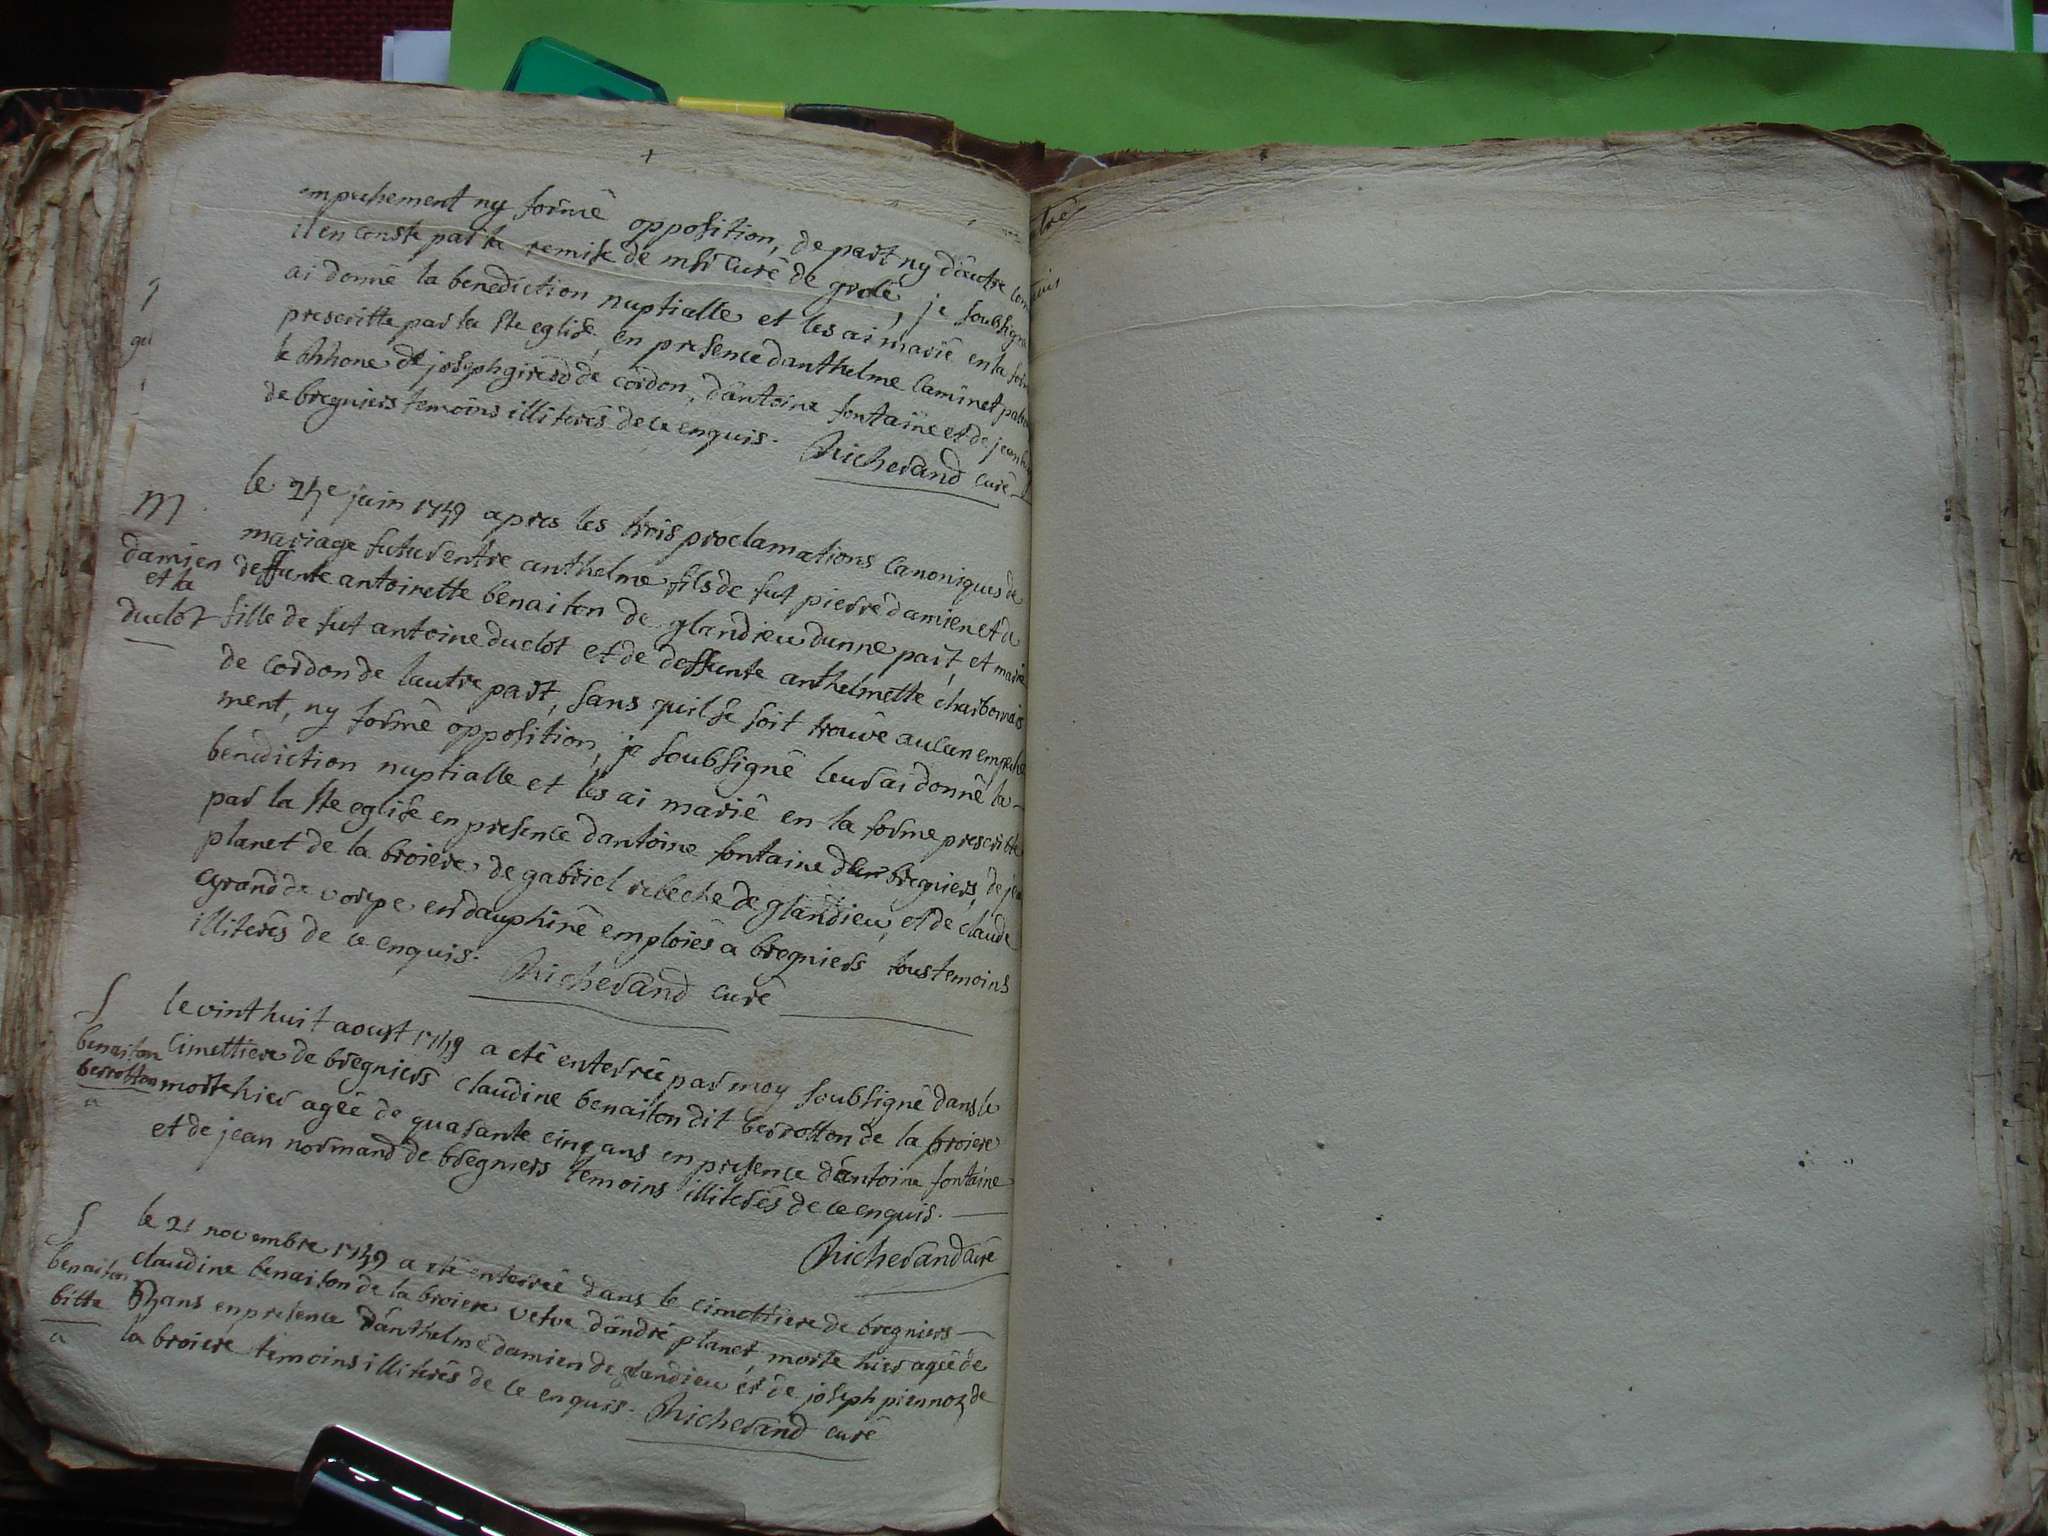 empechement ny formé opposition, de part ny dautre com
il en conste par la remise de msr curé de grolé, je soubsigné
ai donné la benediction nuptialle et les ai marié en la form
prescritte par la ste eglise, en presence danthelme caminet patron
le Rhone de joseph girerd de cordon, dantoine fontaine et de jean
de bregniers temoins illiterés de ce enquis. Richerand curé
M
damien
et la
duclot
le 24e juin 1749 apres les trois proclamations canoniques de
mariage futur entre anthelme fils de fut pierre damien et de
deffunte antoinette benaiton de glandieu dunne part, et marie
fille de fut antoine duclot et de deffunte anthelmette charbonnais
de cordon de lautre part, sans quil se soit trouvé aucun empeche
ment, ny formé opposition, je soubsigné leur ai donné la
benediction nuptialle et les ai marié en la forme prescritte
par la ste eglise en presence dantoine fontaine de bregniers, de jean
planet de la broiere, de gabriel rebeche de glandieu, et de claude
grand de vorepe en dauphiné emploiés a bregniers tous temoins
illiterés de ce enquis. Richerand curé
S
benaiton
berrotton
a
le vint huit aoust 1749 a eté enterrée par moy soubsigné dans le
cimettiere de bregniers claudine benaiton dit berrotton de la broiere
morte hier agée de quarante cinq ans en presence dantoine fontaine
et de jean normand de bregniers temoins illiterés de ce enquis.
Richerand curé
S
benaiton
bitta
a
le 21 novembre 1749 a eté enterrée dans le cimettiere de bregniers
claudine benaiton de la broiere veive dandré planet, morte hier agée de
ans en presence danthelme damien de glandieu et de joseph piennoz de
la broiere temoins illiterés de ce enquis. Richerand curé